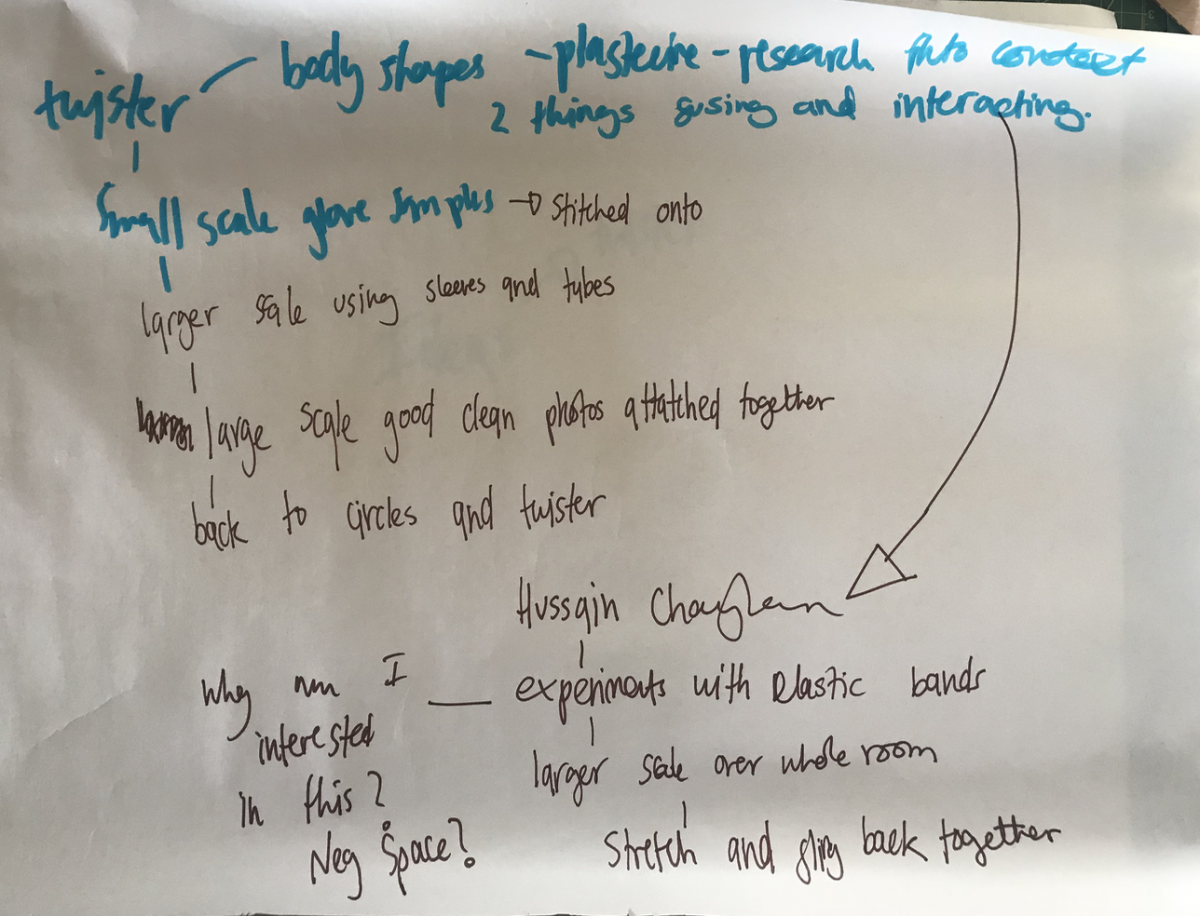 twister
body shapes - plasticine - research into contact
2 things fusing and interacting.
Small scale glove samples → Stitched onto
larger scale using sleeves and tubes
large scale good clean photos attatched together
back to circles and twister
Hussain
Why am I
interested
in this?
Neg Space?
experiments with elastic bands
larger scale over whole room
Stretch and back together